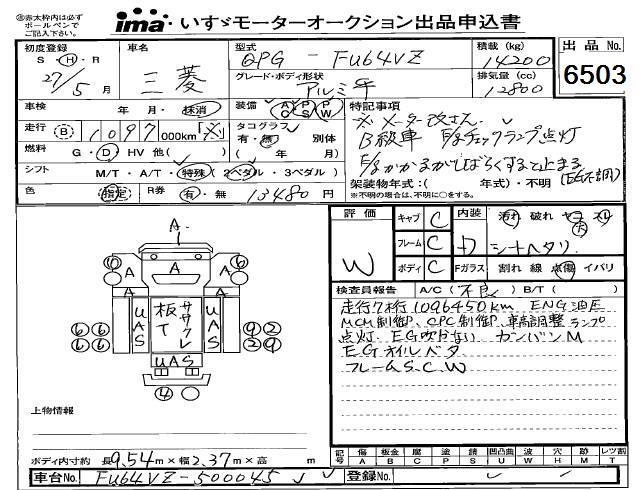 ㊟赤太枠内は必ず
ボールペンで
ご記入下さい。
ima いすゞモーターオークション出品申込書
初度登録
S・H・R
27/5月
車名
三菱
型式
QPG - FU64VZ
グレード・ボディ形状
アルミ平
積載(kg)
14200
排気量(cc)
12800
出品No.
6503
車検 年・月・抹消
装備 AC PS PW
走行 B 1097 000km
タコグラフ
有・無 別体
燃料 G・D・HV 他( )
( 年/ 月)
シフト M/T・A/T・特殊(2ペダル・3ペダル)
色 指定 R券 有・無 13480円
特記事項
※メーター改ざん
B級車 F/gチェックランプ点灯
E/gかかるがしばらくすると止まる
(EG不調)
架装物年式:( 年式)・不明
※不明の場合は、不明に○をする。
評価
W
キャブ C
フレーム C
ボディ C
内装 汚れ 破れ ヤニ スレ
大
カ シートヘタリ
Fガラス 割れ 線 点傷 イバリ
検査員報告 A/C(不良) B/T( )
走行7桁1096450km ENG油圧
MCM制御、CPC制御、車高調整ランプ
点灯、EG吹けない カンバンM
EGオイルベタ
フレームS、C、W
A
A
A
A
6
UAS
板T
ササクレ
UAS
6 6
6 6
9 2
2 9
UAS
4
上物情報
ボディ内寸約 長9.54m×幅2.37m×高 m
車台No. FU64VZ-500045
登録No.
記号 傷A 板金B 腐C 塗P 錆S 凹凸曲U 波W 穴H 跡M レツ割T